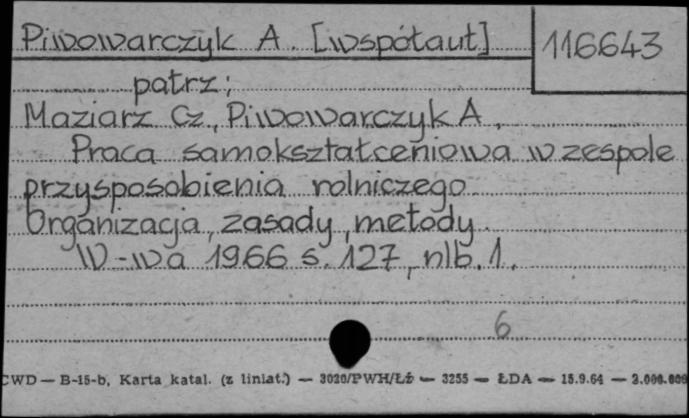 Piwowarczyk A. [współaut] 116643
patrz:
Maziarz Cz., Piwowarczyk A,
Praca samokształceniowa w zespole
przysposobienia rolniczego
Organizacja, zasady, metody.
W-wa 1966 s. 127, nlb. 1.
6
CWD — B-15-b, Karta katal. (z liniat.) — 3020/PWH/Łż — 3255 — ŁDA — 15.9.64 — 2.000.000